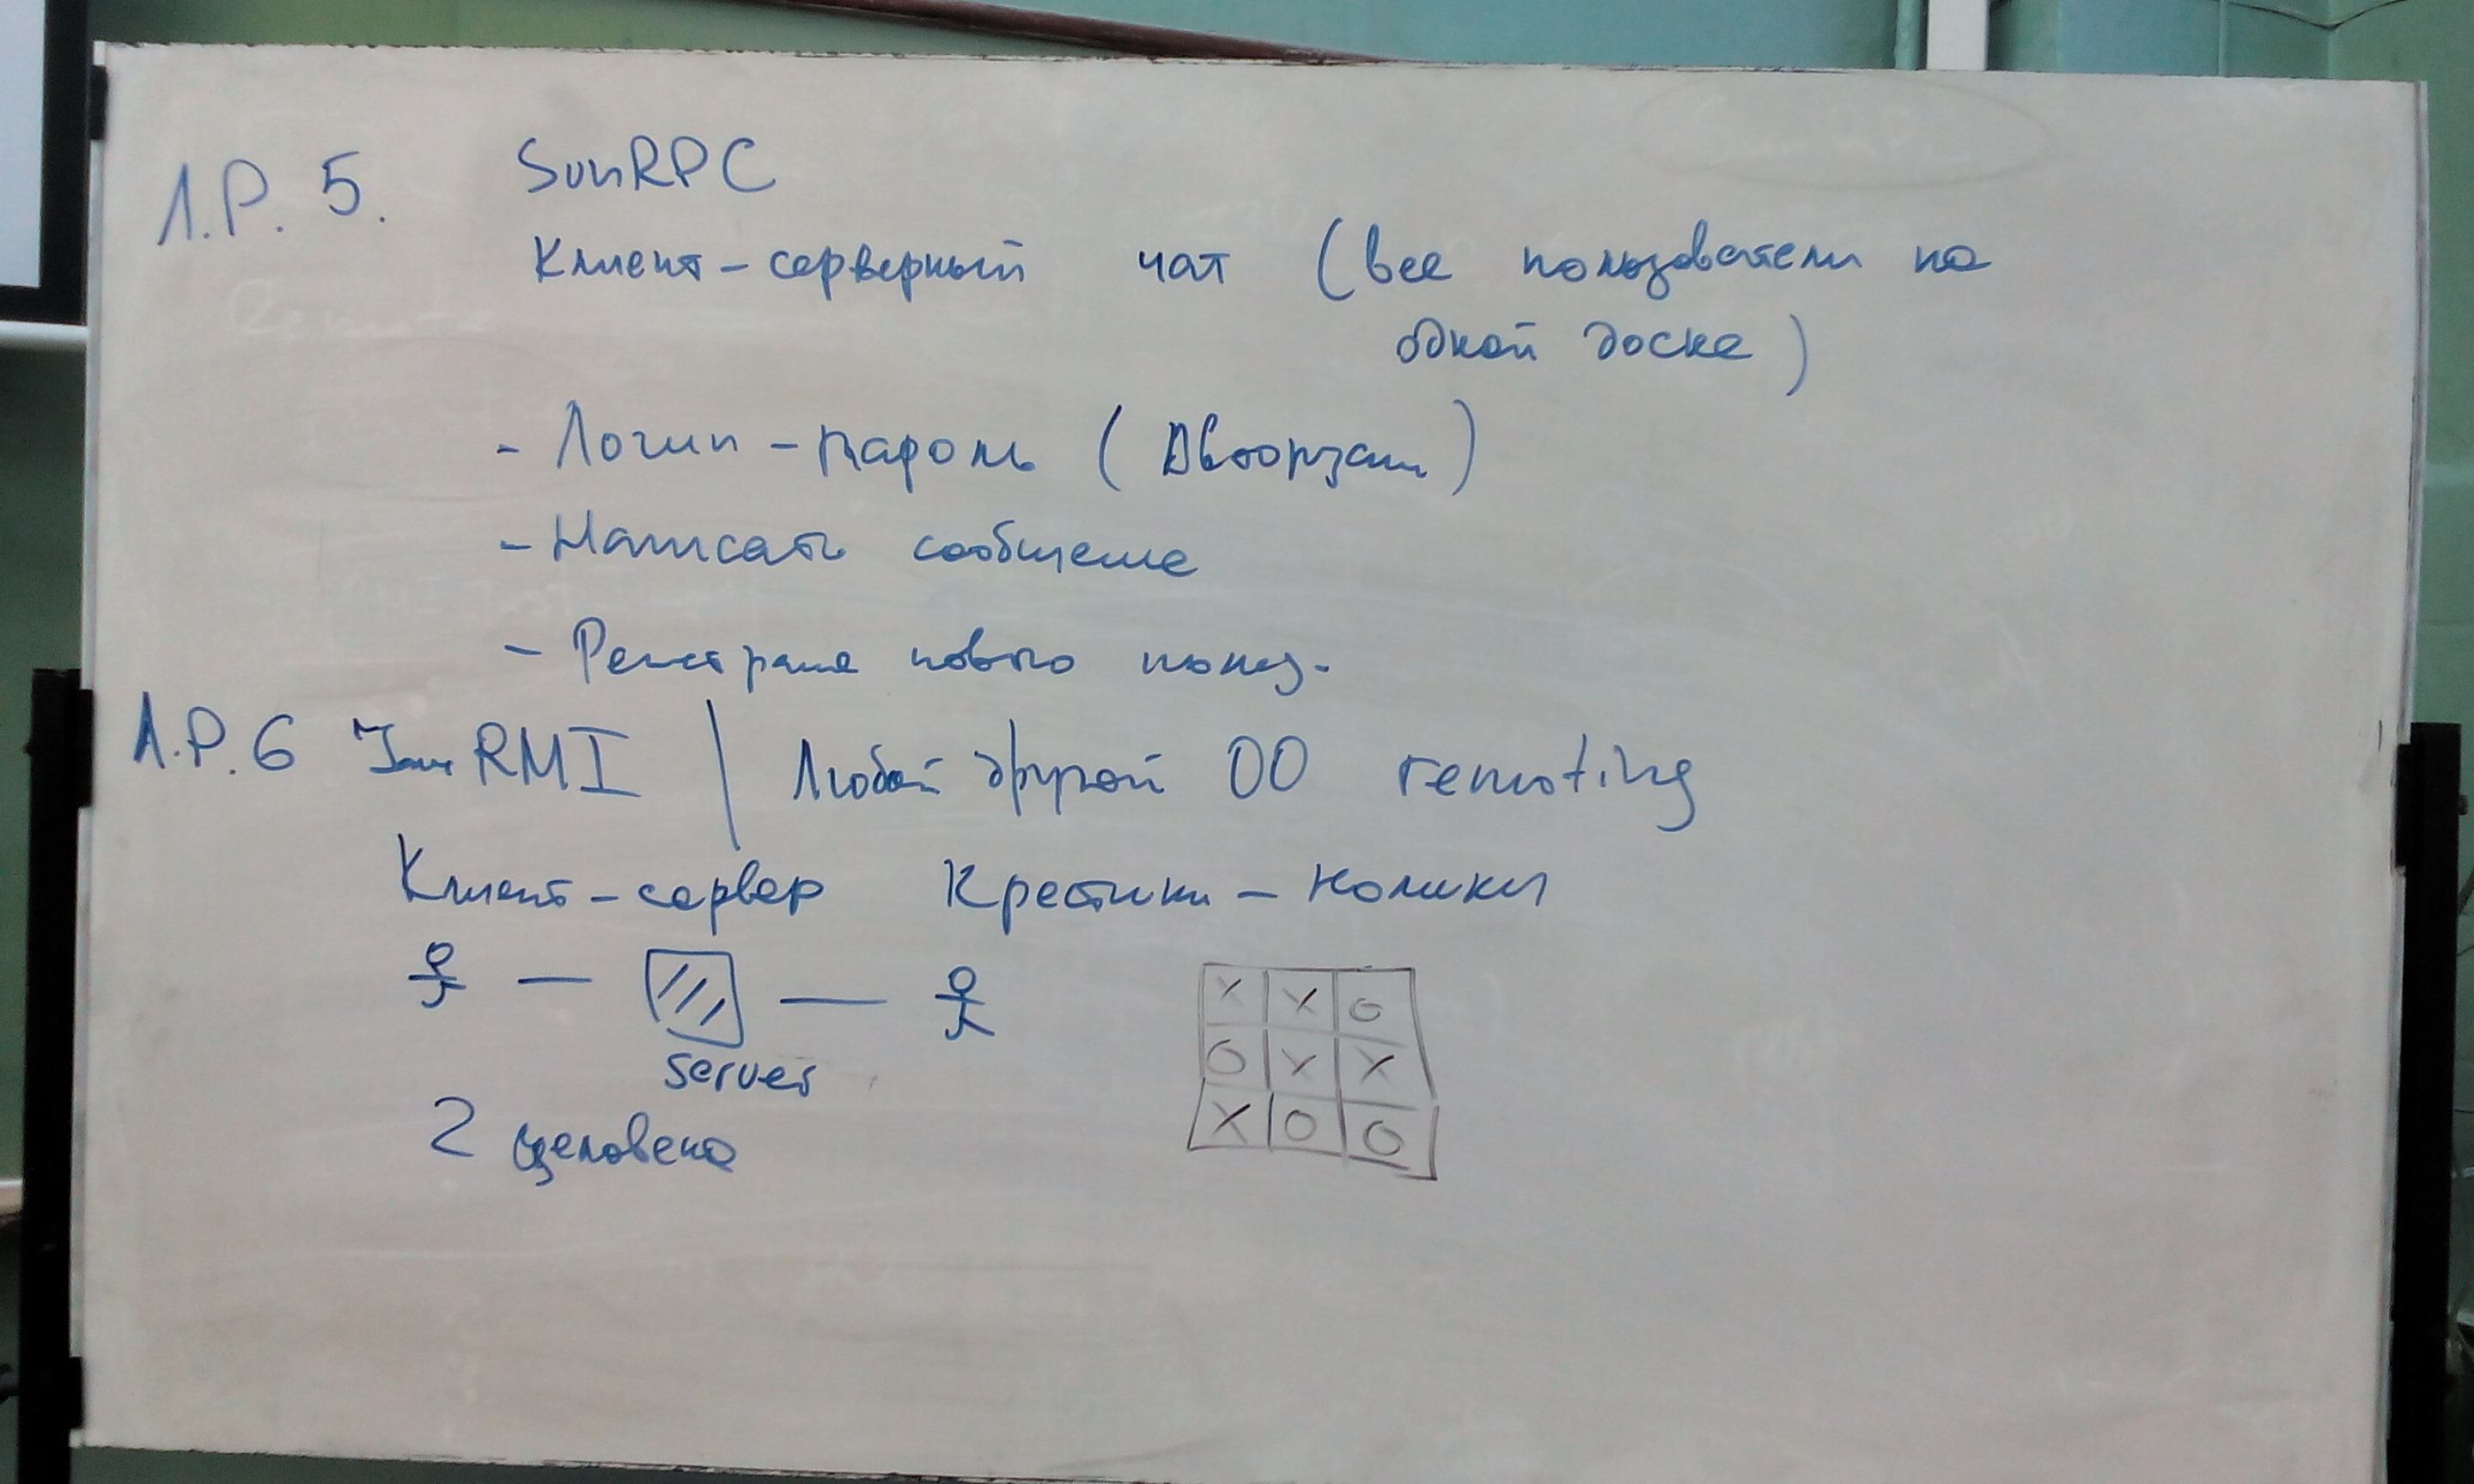 Л.Р. 5. SunRPC
Клиент-серверный чат (все пользователи на
одной доске)
- Логин-пароль (Авториза
- Написать сообщение
- Регистрация нового польз.
Л.Р.6 Java RMI / Любой другой OO remoting
Клиент-сервер Крестики-нолики
server
2 человека
X X O
O X X
X O O